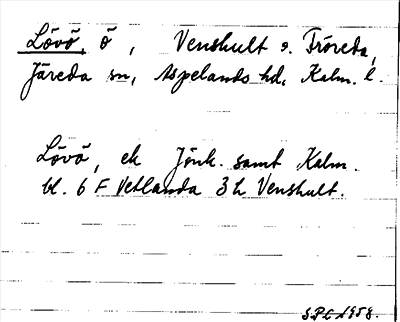 Lövö, ö, Venshult o. Fröreda,
Järeda sn, Aspelands hd, Kalm. l.
Lövö, ek Jönk. samt Kalm.
bl. 6 F Vetlanda 3 h Venshult.
SPC 1958.